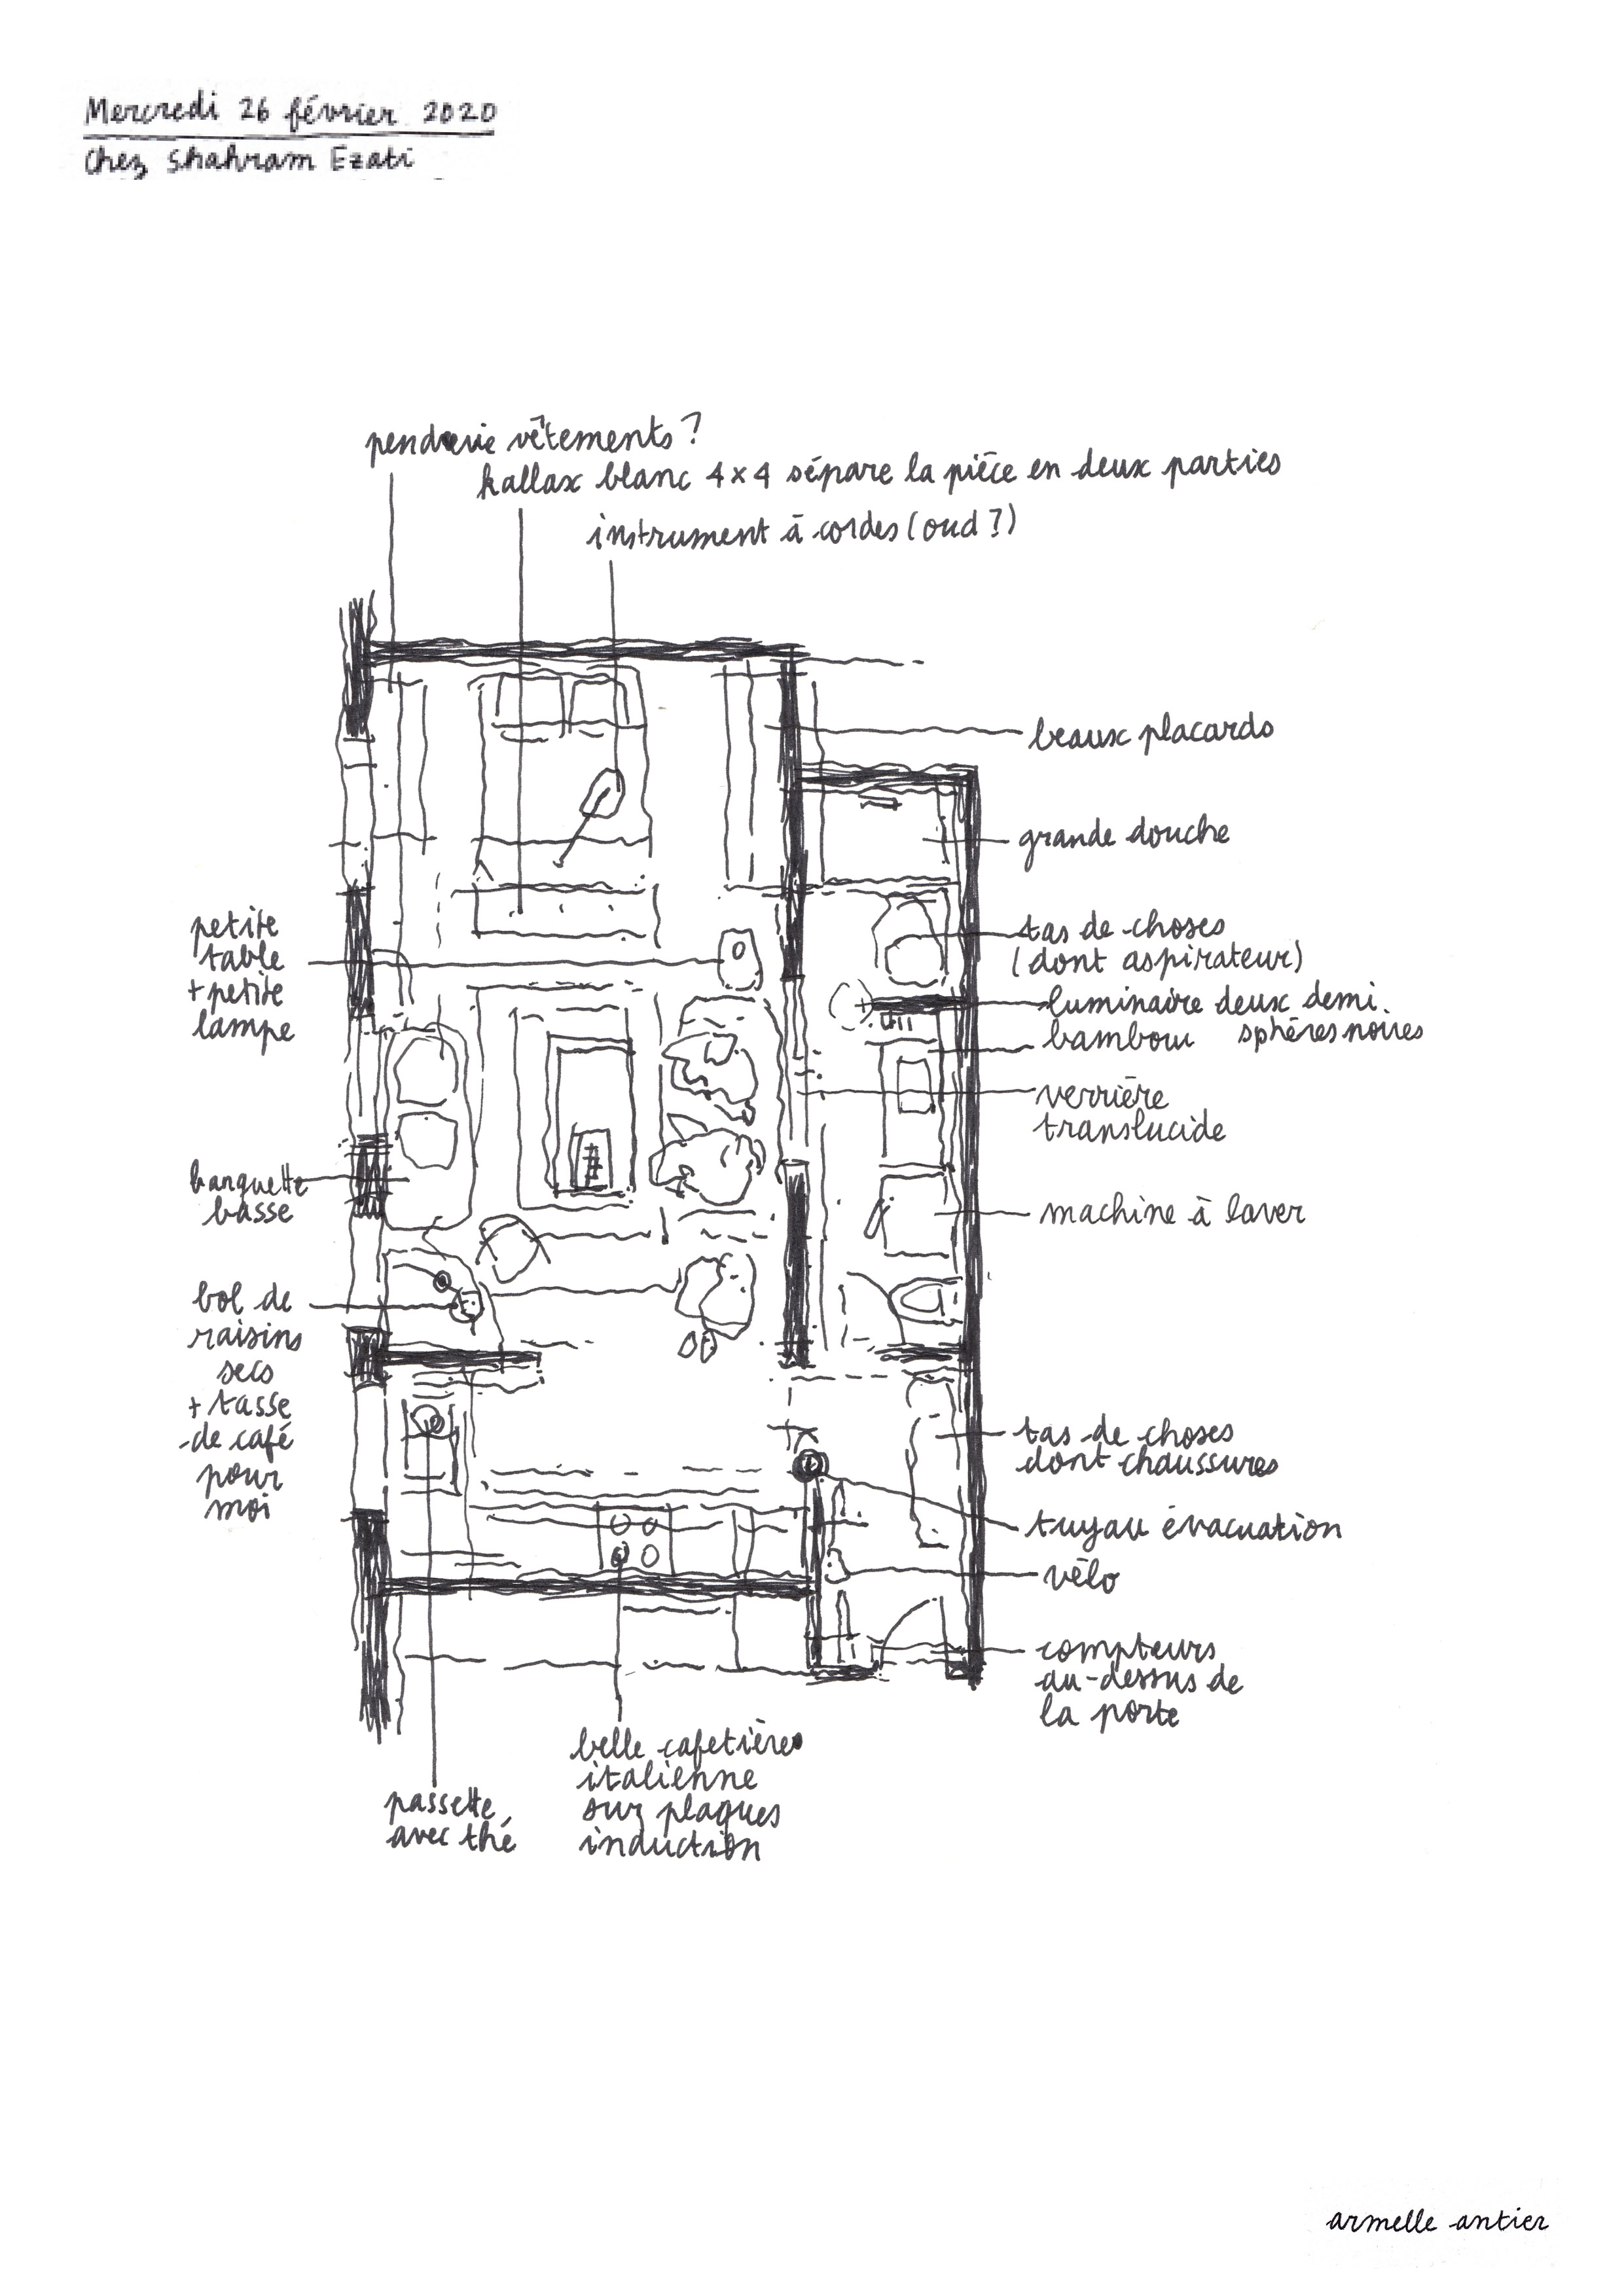 Mercredi 26 février 2020
Chez Shahram Ezati
penderie vêtements ?
kallax blanc 4x4 sépare la pièce en deux parties
instrument à cordes (oud ?)
beaux placards
grande douche
petite
table
+ petite
lampe
tas de choses
(dont aspirateur)
luminaire deux demi
sphères noires
bambou
verrière
translucide
banquette
basse
machine à laver
bol de
raisins
secs
+ tasse
de café
pour
moi
tas de choses
dont chaussures
tuyau évacuation
vélo
compteurs
au-dessus de
la porte
belle cafetière
italienne
sur plaques
induction
passette
avec thé
armelle antier